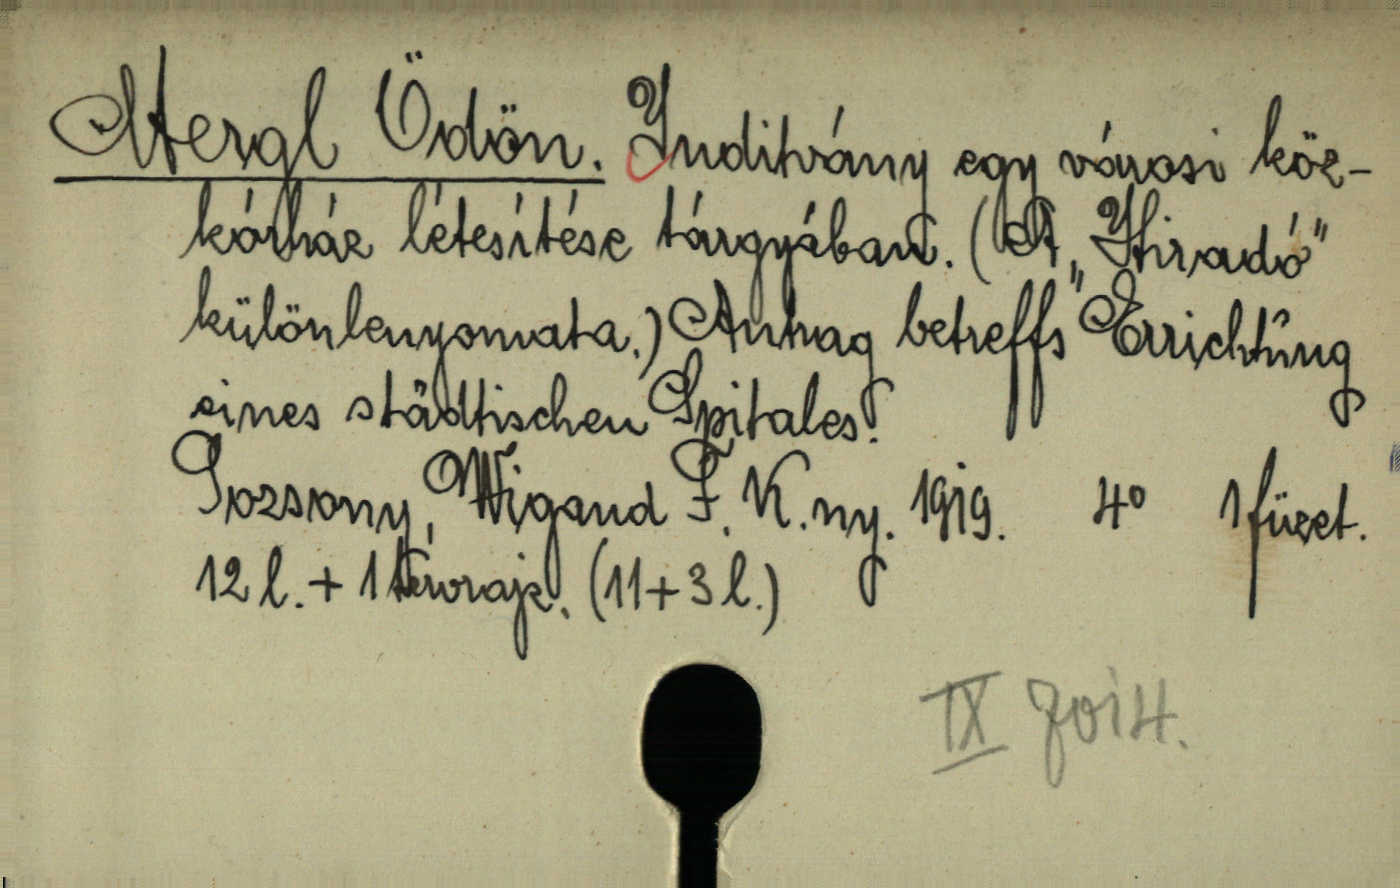 Mergl Ödön. Inditvány egy városi köz-
kórház létesítése tárgyában. (A „Hiradó”
különlenyomata.) Antrag betreffs Errichtung
eines städtischen Spitales.
Pozsony, Wigand F. K. ny. 1919. 4° 1 füzet.
12 l. + 1 tervrajz. (11+3 l.)
IX